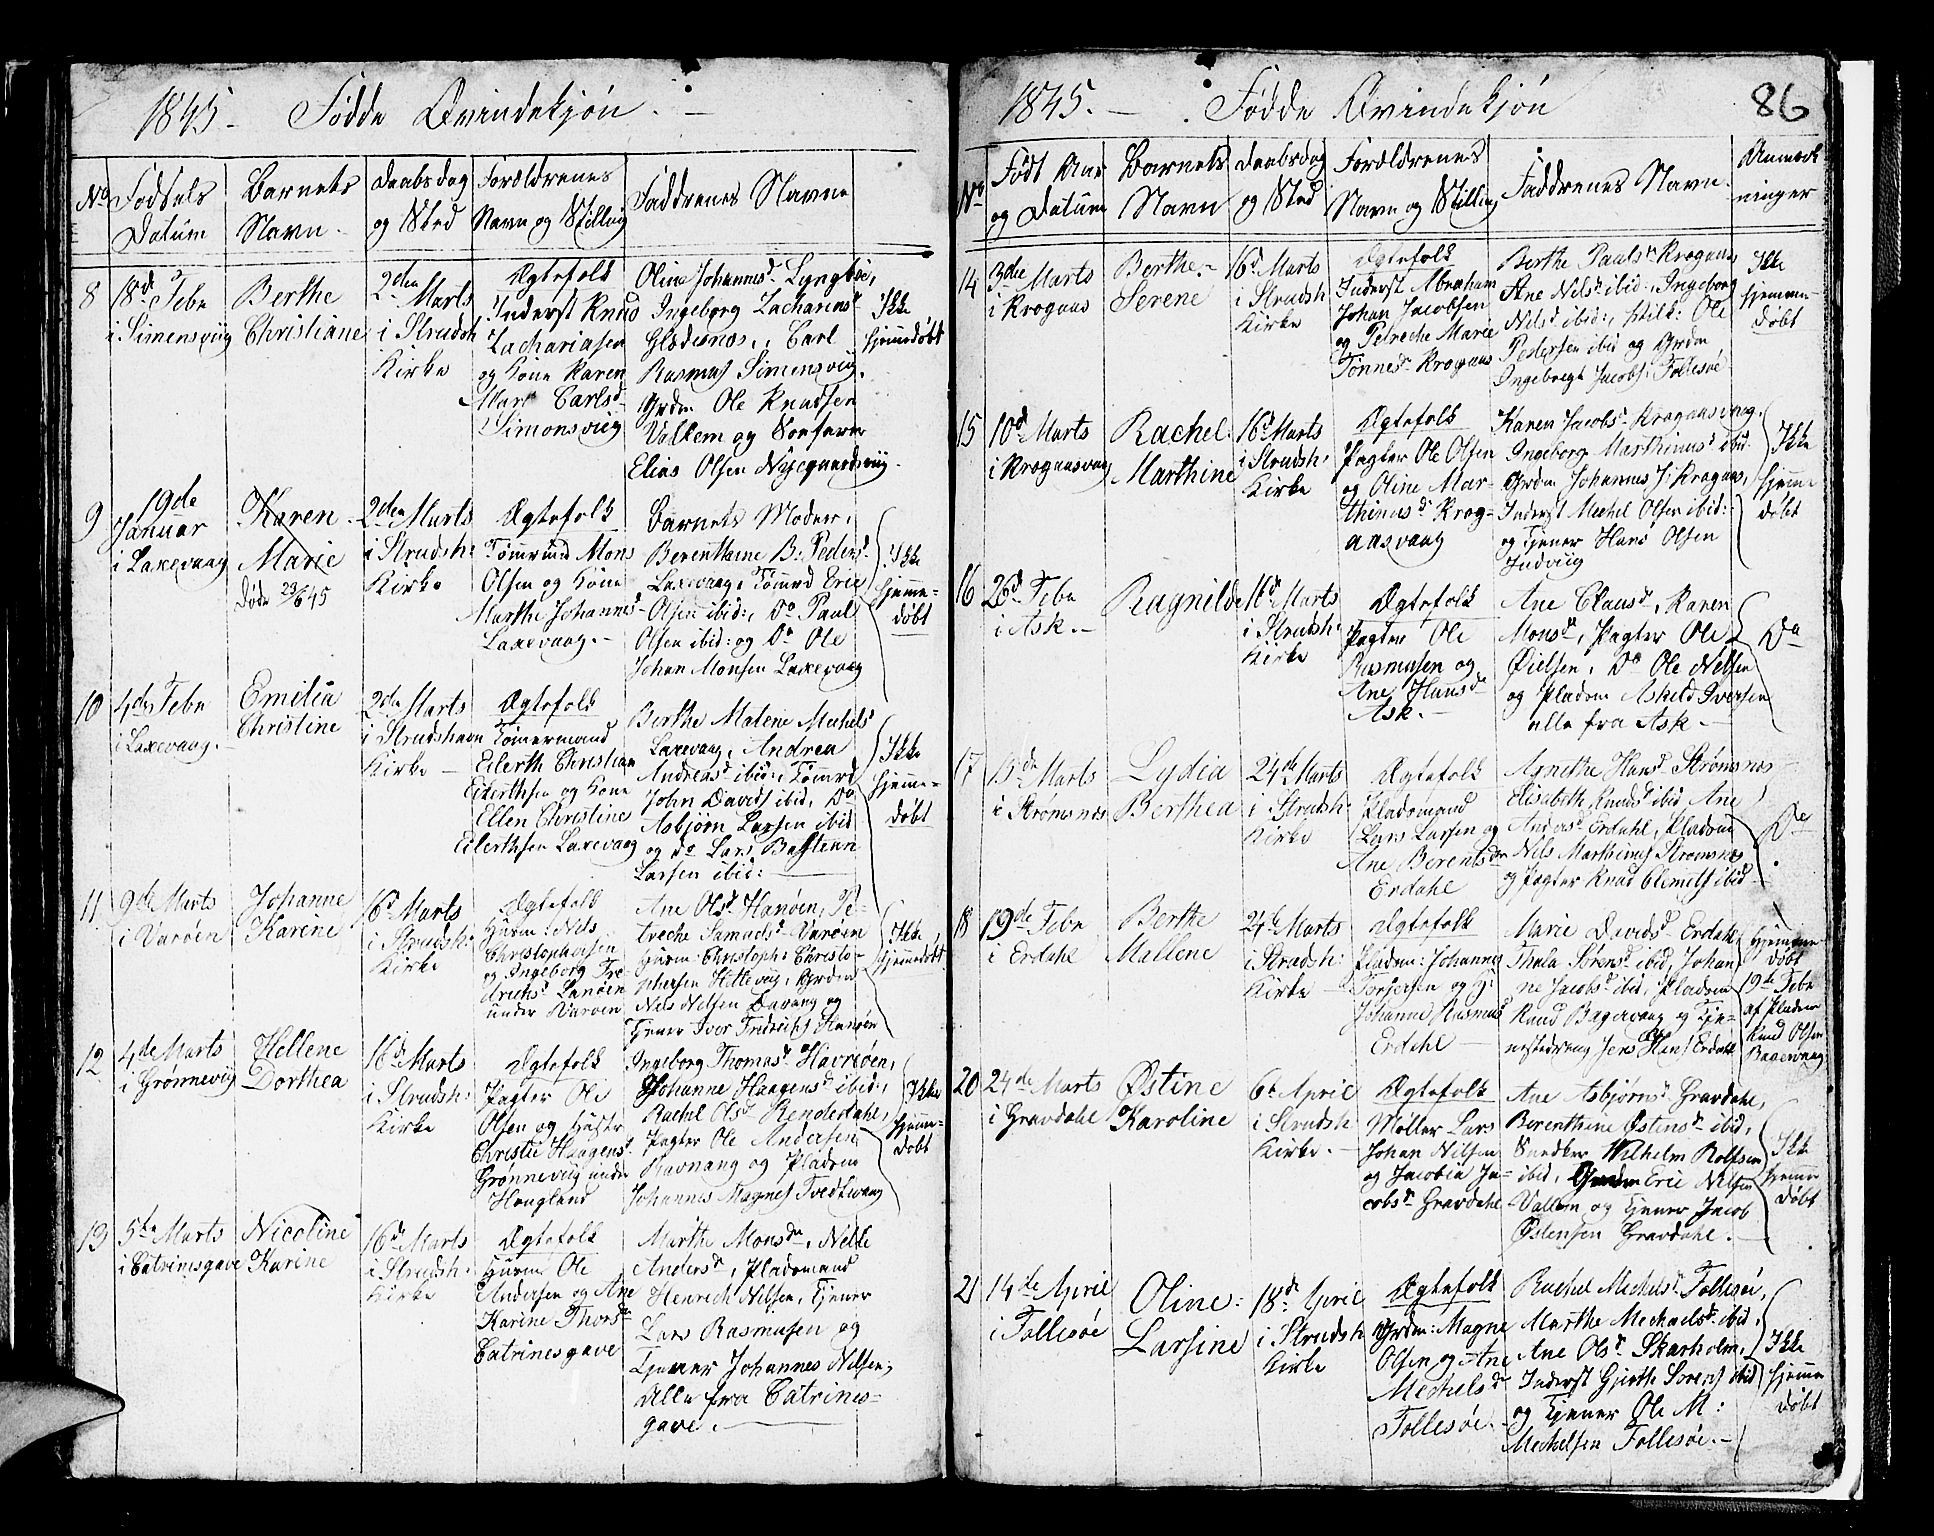 1845. Fødde Qvindekjøn.
No Fødsels Datum | Barnets Navn. | Daabsdag og Sted | Forældrenes Navn og Stilling | Faddrenes Navne
8 | 18d Febr i Simensviig | Berthe Christiane | 2den Marts i Strudsh Kirke | Ægtefolk Inderst Knud Zachariasen og Kone Karen Mart Carlsd Simonsviig | Oline Johannesd Lyngbøe, Ingeborg Zachariasd Glæsnæs, Carl Rasmus Simensviig, Grdm Ole Knudsen Valkem og Elias Olsen Nygaardsviig. | Ikke hjemedøbt
9 | 19de Januar i Laxevaag | Karen Marie Døde 23/6 45 | 2den Marts i Strudsh: Kirke | Ægtefolk Tømmrmd Mons Olsen og Kone Marthe Johannesd Laxevaag. | Barnets Moder, Berenthine B. Pedersd Laxevaag, Tømrd Eric Olsen ibid:, Do Paul Olsen ibid: og Do Ole Johan Monsen Laxevaag | Ikke hjemedøbt
10 | 4de Febr i Laxevaag. | Emilia Christine | 2den Marts i Strudshavn Kirke | Ægtefolk Tømermand Eilerth Christian Eilerthsen og Kone Ellen Christine Eilerthsen Laxevaag | Berthe Malene Michelsd Laxevaag, Andrea Andreasd ibid:, Tømrd John Davids ibid, Do Asbjørn Larsen ibid og do Lars Bastian Larsen ibid: | Ikke hjemedøbt
11 | 9de Marts i Varøen | Johanne Karine | 16d Marts i Strudsh: Kirke | Ægtefolk Huusm: Nils Christophersen og Ingeborg Fredrichsd Hanøen under Varøen | Ane Olsd Hanøen, Petreche Samuelsd Varøen Huusm: Christoph: Christophersen Hillevig, Grdm Nels Nelsen Davang og Tjener Iver Fredrichs Hanøen | Ikke hjemedøbt
12 | 4de Marts i Grønneviig | Hellene Dorthea | 16de Marts i Strudsh: Kirke | Ægtefolk Pagter Ole Olsen og Hustr Christie Haagensd Grønneviig under Hougland | Ingeborg Thomasd Havreøen, Johanne Haagensd ibid:, Rachel Olsd Rendedahl, Pagter Ole Andersen Ravnang og Pladsm Johannes Magnes Tvedtvaag | Ikke hjemedøbt
13 | 5te Marts i Catrinesgave | Nicoline Karine | 16d Marts i Strudsh: Kirke | Ægtefolk Huusm: Ole Andersen og Ane Karine Thorsd Catrinesgave | Marthe Monsdr, Nelle Andersd, Pladsmand Henrich Nilsen, Tjener Lars Rasmusen og Tjener Johannes Nilsen, Alle fra Catrinesgave.
1845. Fødde Qvindekjøn 86
No | Født Aar og Datum | Barnets Navn | Daabsdag og Sted | Forældrenes Navn og Stilling | Faddrenes Navn. | Anmærkninger
14 | 3die Marts i Krogaas | Berthe Serene | 16d Marts i Strudsh Kirke | Ægtefolk Inderst Abraham Johan Jacobsen og Petreche Marie Tønnesd Krogaas | Berthe Paulsdr Krogaas, Ane Nelsd ibid:, Ingeborg Nelsd ibid:, Ole Pedersen ibid og Grdm Ingebrigt Jacobs: Follesøe | Ikke hjemmedøbt
15 | 10d Marts i Krogaasvaag | Rachel Marthine | 16d Marts i Strudsh: Kirke | Ægtefolk Pagter Ole Olsen og Oline Marthinusd Krogaasvaag | Karen Jacobsd Krogaasvaag, Ingeborg Marthinusd ibid: Grdm Johannes J: Krogaas, Inderst Mechel Olsen ibid: og Tjener Hans Olsen Indviig | Ikke hjemedøbt
16 | 26d Febr i Ask. | Ragnilde | 16d Marts i Strudsh: Kirke | Ægtefolk Pagter Ole Rasmusen og Ane Hansd Ask. | Ane Clausd, Karen Monsd, Pagter Ole Øielsen, Do Ole Nelsen og Pladsm Askild Iversen alle fra Ask. | Do
17 | 13de Marts i Strømsnæs | Lydia Berthea | 24de Marts i Strudsh: Kirke | Ægtefolk Pladsmand Lars Larsen og Ane Berentsdr Erdahl | Agnethe Hansd Strømsnæs Elisabeth Knudsd ibid, Ane Andersd Erdahl, Pladsm Nils Marthinus Strømsnæs og Pagter Knud Clemets ibid | Do
18 | 19de Febr i Erdahl | Berthe Mallene | 24de Marts i Strudsh: Kirke | Ægtefolk Pladsm: Johannes Torgersen og H: Johanne Rasmusd Erdahl | Marie Davidsd Erdahl, Thala Sørensd ibid, Johanne Jacobsd ibid, Pladsm Knud Bagervaag og Tjenestedreng Jens Hans Erdahl | Hjemmedøbt 19de Febr af Pladsm Knud Olsen Bagervaag
20 | 24de Marts i Gravdahl | Østine Karoline | 6te April i Strudsh Kirke. | Ægtefolk Møller Lars Johan Nilsen og Jacobia Jacobsd Gravdahl | Ane Asbjørnsd Gravdahl, Berenthine Østensd ibid, Snedker Wilhelm Rolfsen ibid, Grdm Eric Nilsen Vallem og Tjener Jacob Østensen Gravdahl. | Ikke hjemmedøbt
21 | 14de April i Follesøe | Oline Larsine | 18d April i Strudsh Kirke | Ægtefolk Grdm: Magne Olsen og Ane Mechelsdr Follesøe | Rachel Mechelsd Follesøe, Marthe Mechaelsd ibid, Ane Olsd Skarholm, Inderst Gjerth Sørens ibid og Tjener Ole M: Mechelsen Follesøe. | Ikke hjemedøbt